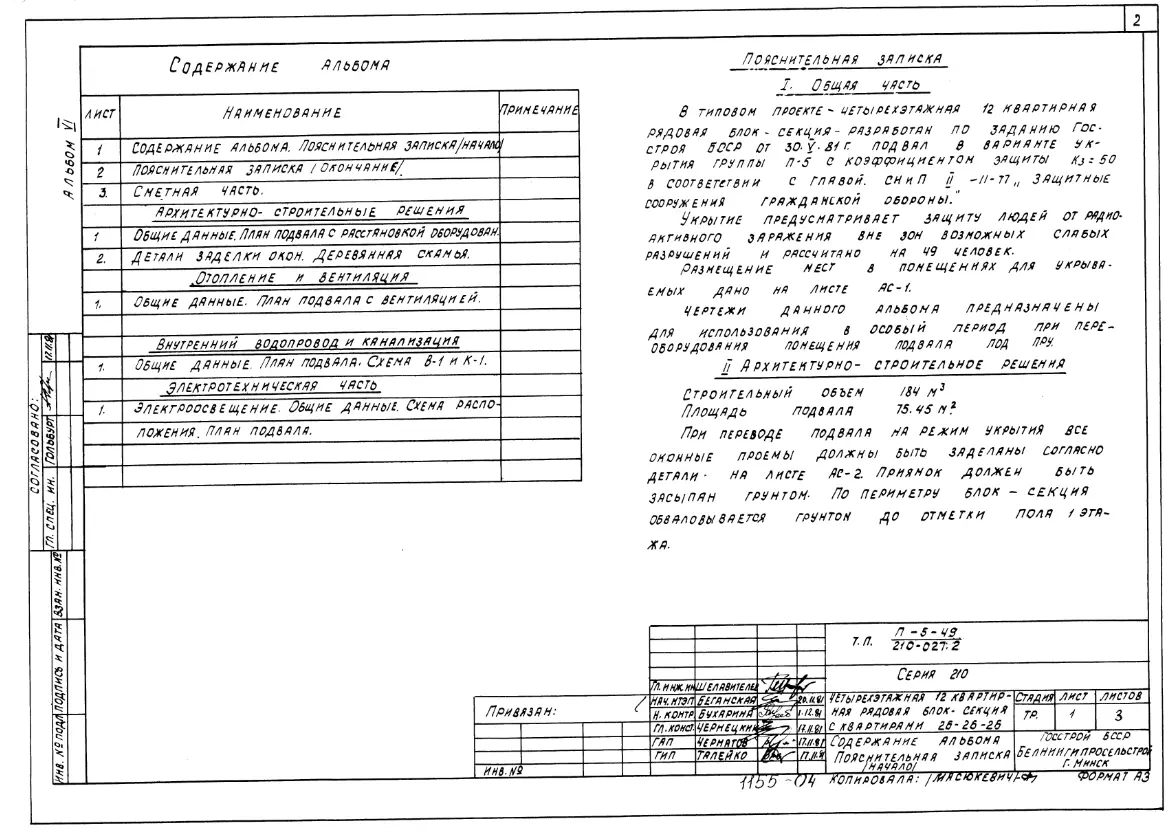 2
Альбом VI
Содержание альбома
лист Наименование Примечание
1 Содержание альбома. Пояснительная записка/начало/
2 Пояснительная записка /окончание/
3. Сметная часть.
Архитектурно-строительные решения
1 Общие данные. План подвала с расстановкой оборудован.
2. Детали заделки окон. Деревянная скамья.
Отопление и вентиляция
1. Общие данные. План подвала с вентиляцией.
Внутренний водопровод и канализация
1. Общие данные. План подвала. Схема В-1 и К-1.
Электротехническая часть
1. Электроосвещение. Общие данные. Схема распо-
ложения. План подвала.
Пояснительная записка
I. Общая часть
В типовом проекте - четырехэтажная 12 квартирная
рядовая блок-секция - разработан по заданию Гос-
строя БССР от 30.V.81 г. подвал в варианте ук-
рытия группы П-5 с коэффициентом защиты Кз=50
в соответствии с главой. СНиП II-11-77 „Защитные
сооружения гражданской обороны."
Укрытие предусматривает защиту людей от радио-
активного заражения вне зон возможных слабых
разрушений и рассчитано на 49 человек.
Размещение мест в помещениях для укрыва-
емых дано на листе АС-1.
Чертежи данного альбома предназначены
для использования в особый период при пере-
оборудования помещения подвала под ПРУ.
II Архитектурно-строительное решения
Строительный объем 184 м³
Площадь подвала 75.45 м²
При переводе подвала на режим укрытия все
оконные проемы должны быть заделаны согласно
детали - на листе АС-2. Приямок должен быть
засыпан грунтом. По периметру блок-секция
обваловывается грунтом до отметки пола 1 эта-
жа.
Согласовано:
Гл. спец. ин. Гольбурт
Взам. инв. №
Подпись и дата
Инв. № подл
Привязан:
Инв. №
Т.П. П-5-49
210-027.2
Серия 210
Гл. инж. ин Шелавителев
Нач. НТЭП Беганская 20.11.81
Н. контр. Бухарина 1.12.81
Гл. конст. Чернецкий 17.11.81
ГАП Чернатов 17.11.81
ГИП Талейко 17.11.81
Четырехэтажная 12 квартир-
ная рядовая блок-секция
с квартирами 2Б-2Б-2Б
Стадия лист листов
ТР. 1 3
Содержание альбома
Пояснительная записка
/начало/
Госстрой БССР
Белниигипросельстрой
г. Минск
1155-04 Копировала: /Масюкевич/ Формат А3